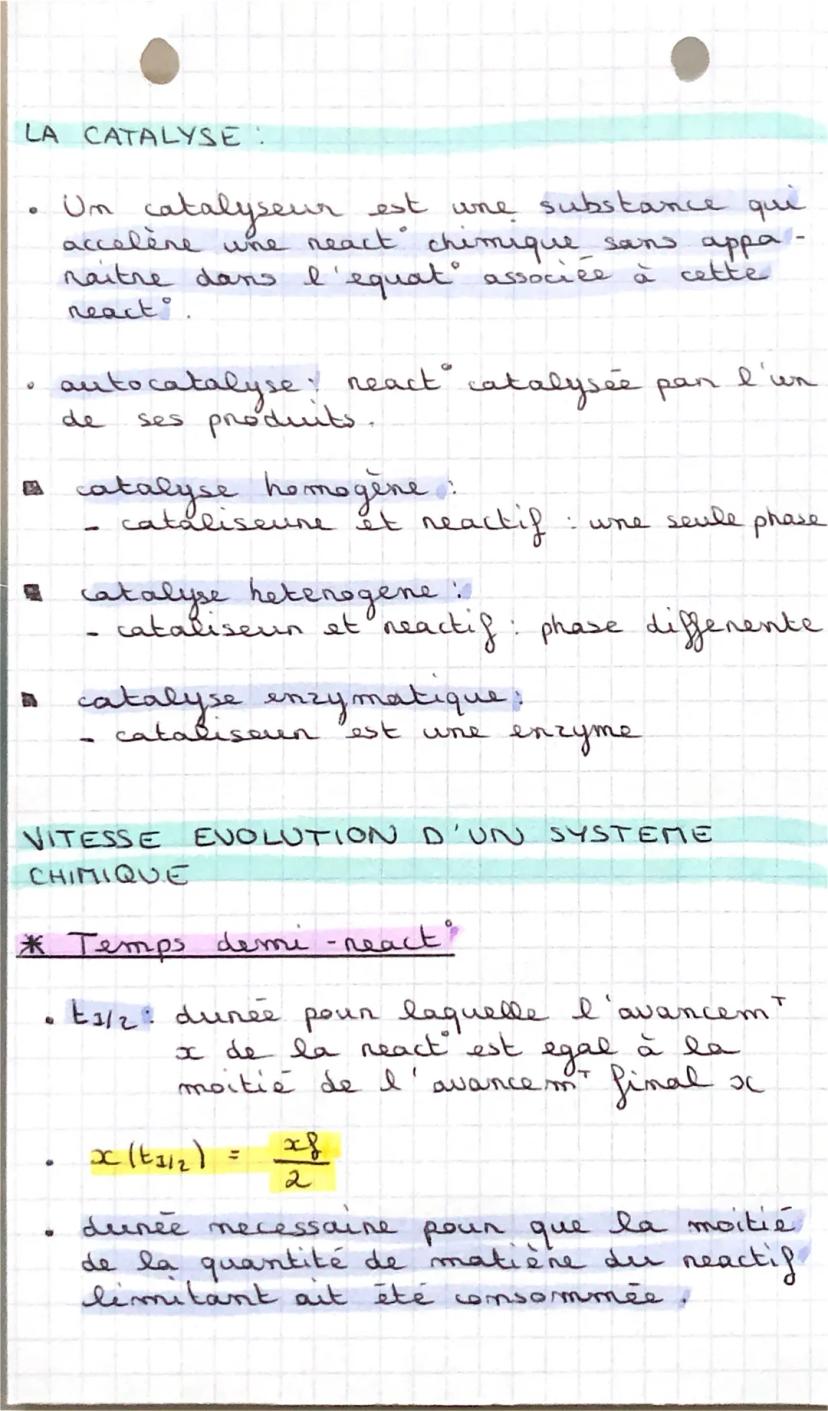 LA CATALYSE :
• Un catalyseur est une substance qui
accelère une react° chimique sans appa-
raitre dans l'equat° associée à cette
react°.
• autocatalyse : react° catalysée par l'un
de ses produits.
catalyse homogène :
- cataliseure et reactif : une seule phase
catalyse heterogene :
- cataliseur et reactif : phase differente
catalyse enzymatique :
- cataliseur est une enzyme
VITESSE EVOLUTION D'UN SYSTEME
CHIMIQUE
* Temps demi-react°
• t1/2 : durée pour laquelle l'avancemT
x de la react° est egal à la
moitié de l'avancemT final x
• x(t1/2) = xf/2
• durée necessaire pour que la moitié
de la quantité de matière du reactif
limitant ait été consommée.